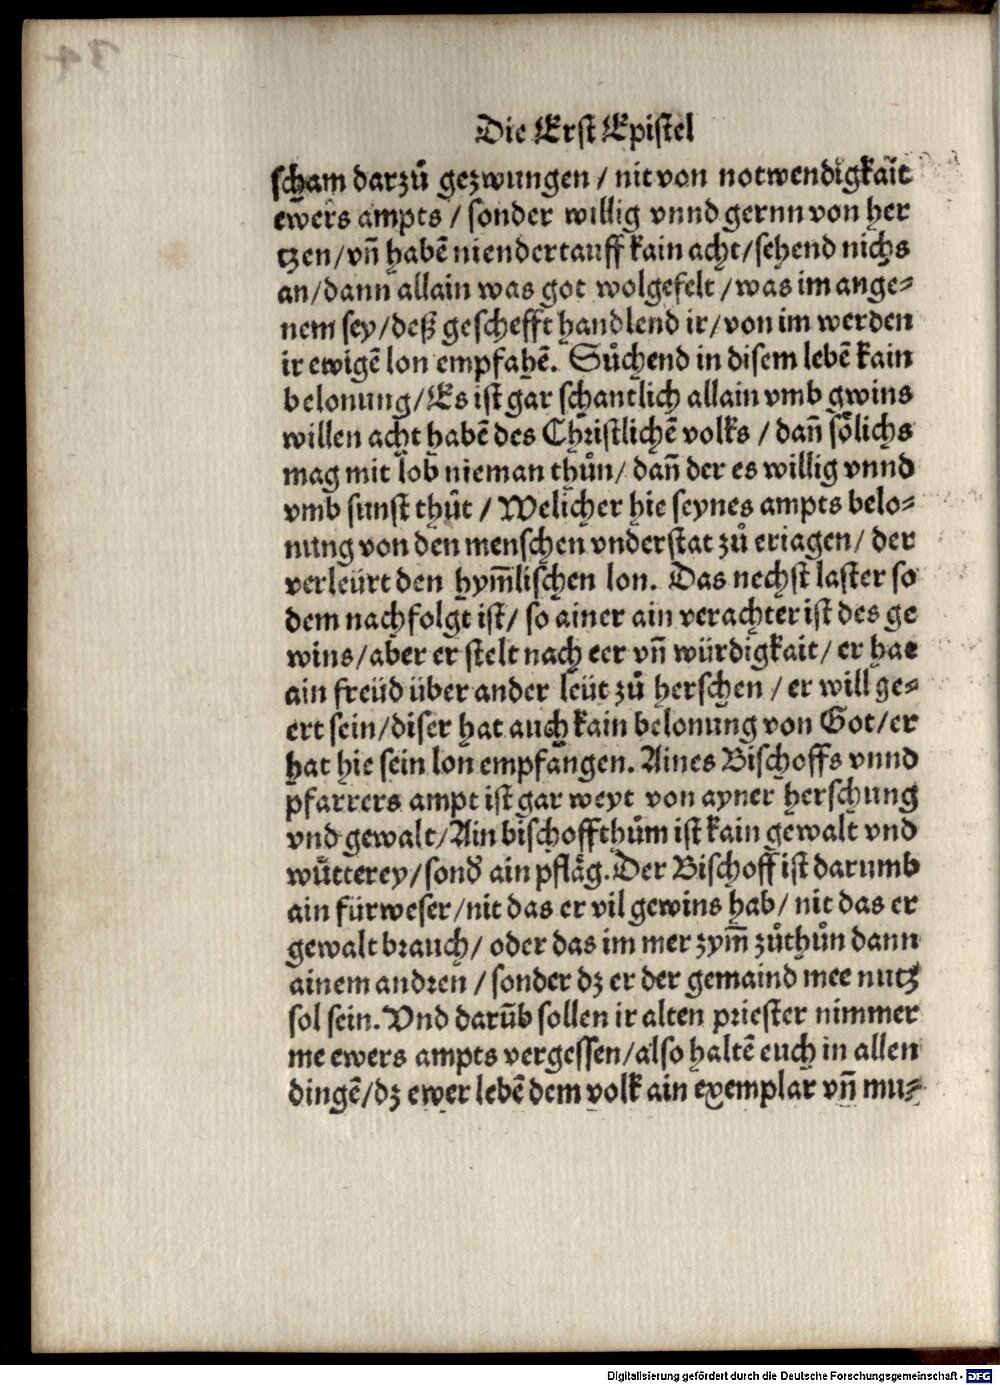 Die Erst Epistel
scham darzuͦ gezwungen / nit von notwendigkait
ewers ampts / sonder willig vnnd gernn von her
tzen/vn̄ habē niendertauff kain acht/sehend nichs
an/dann allain was got wolgefelt/was im ange⸗
nem sey/deß geschefft handlend ir/von im werden
ir ewigē lon empfahē. Suͦchend in disem lebē kain
belonung/Es ist gar schantlich allain vmb gwins
willen acht habē des Christlichē volks / dan̄ soͤlichs
mag mit lob nieman thuͦn/dan̄ der es willig vnnd
vmb sunst thuͦt / Welicher hie seynes ampts belo⸗
nung von den menschen vnderstat zuͦ eriagen/ der
verleürt den hym̄lischen lon. Das nechst laster so
dem nachfolgt ist/ so ainer ain verachter ist des ge
wins/aber er stelt nach eer vn̄ würdigkait/ er hat
ain freüd über ander leüt zuͦ herschen / er will ge⸗
ert sein/diser hat auch kain belonung von Got/er
hat hie sein lon empfangen. Aines Bischoffs vnnd
pfarrers ampt ist gar weyt von ayner herschung
vnd gewalt/Ain bischoffthuͦm ist kain gewalt vnd
wuͤtterey/sond̄ ain pflaͤg. Der Bischoff ist darumb
ain fürweser/nit das er vil gewins hab/ nit das er
gewalt brauch/ oder das im mer zym̄ zuͦthuͦn dann
ainem andren / sonder dz er der gemaind mee nutz
sol sein. Vnd darūb sollen ir alten priester nimmer
me ewers ampts vergessen/also haltē euch in allen
dingē/dz ewer lebē dem volk ain exemplar vn̄ mu⸗
Digitalisierung gefördert durch die Deutsche Forschungsgemeinschaft - DFG